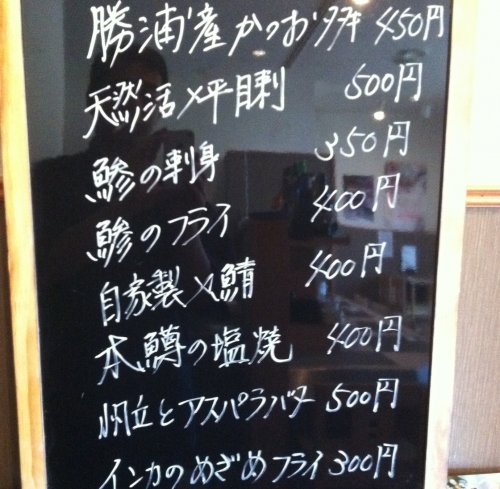 勝浦産かつおタタキ 450円
天然活〆平目刺 500円
鯵の刺身 350円
鯵のフライ 400円
自家製〆鯖 400円
本鱒の塩焼 400円
帆立とアスパラバター 500円
インカのめざめフライ 300円